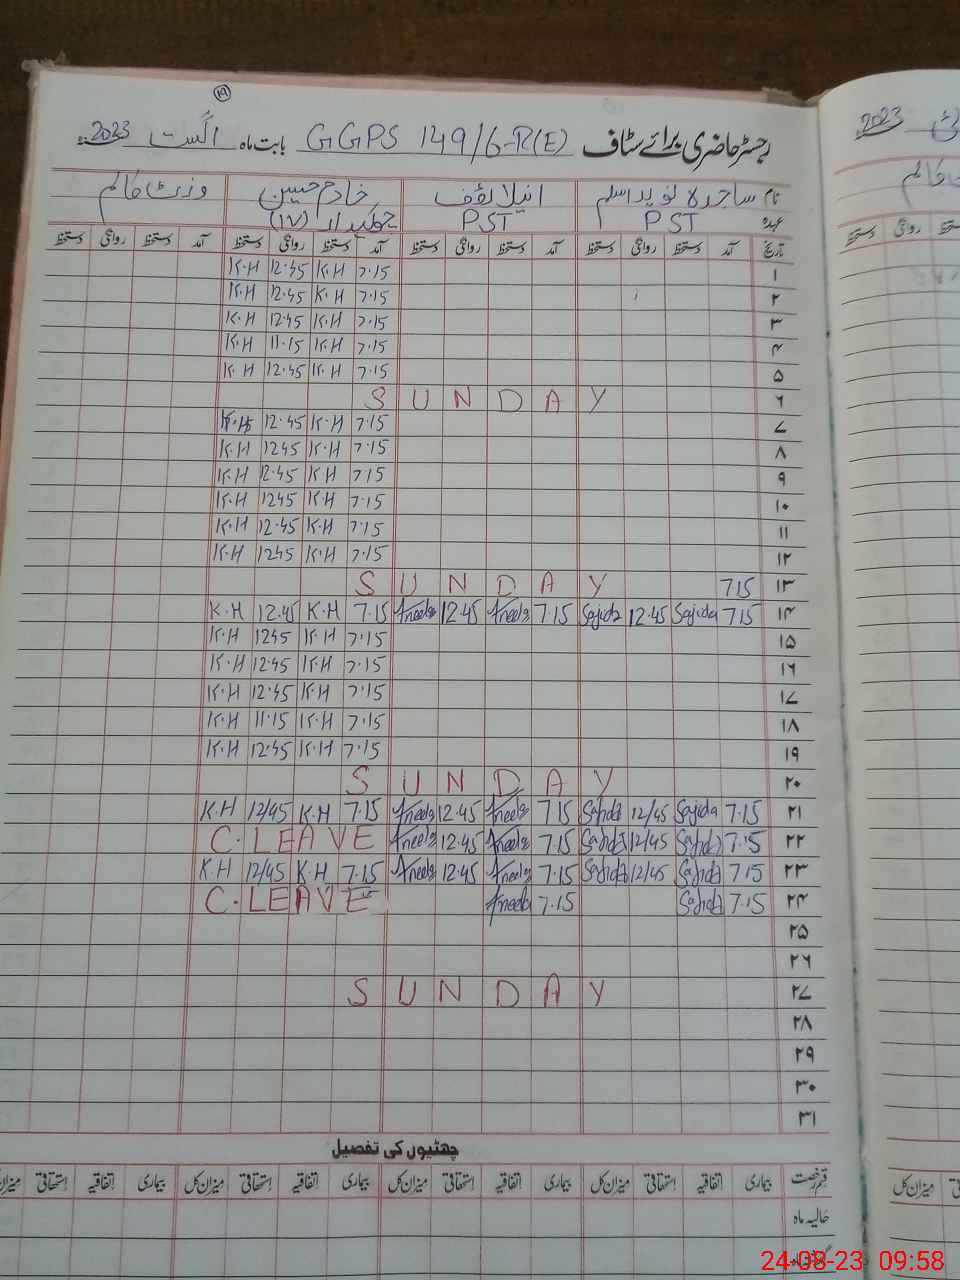 ۱۹
رجسٹر حاضری برائے سٹاف GGPS 149/6-R(E) بابت ماہ اگست 2023
نام ساجدہ نوید اسلم انیلا لئف خادم حسین وزٹ کالم
عہدہ PST PST چوکیدار (IV)
تاریخ آمد دستخط روانگی دستخط آمد دستخط روانگی دستخط آمد دستخط روانگی دستخط آمد دستخط روانگی دستخط
۱ 7.15 K.H 12.45 K.H
۲ 7.15 K.H 12.45 K.H
۳ 7.15 K.H 12.45 K.H
۴ 7.15 K.H 11.15 K.H
۵ 7.15 K.H 12.45 K.H
۶ SUNDAY
۷ 7.15 K.H 12.45 K.H
۸ 7.15 K.H 1245 K.H
۹ 715 K.H 12.45 K.H
۱۰ 7.15 K.H 1245 K.H
۱۱ 7.15 K.H 12.45 K.H
۱۲ 7.15 K.H 1245 K.H
۱۳ 715 SUNDAY
۱۴ 715 Sajida 12.45 Sajida 7.15 Aneela 12.45 Aneela 7.15 K.H 12.45 K.H
۱۵ 7.15 K.H 1245 K.H
۱۶ 7.15 K.H 12.45 K.H
۱۷ 7.15 K.H 12.45 K.H
۱۸ 7.15 K.H 11.15 K.H
۱۹ 7.15 K.H 12.45 K.H
۲۰ SUNDAY
۲۱ 7.15 Sajida 12/45 Sajida 715 Aneela 12.45 Aneela 7.15 K.H 12/45 K.H
۲۲ 7.15 Sajida 12/45 Sajida 7.15 Aneela 12.45 Aneela C.LEAVE
۲۳ 715 Sajida 12/45 Sajida 7.15 Aneela 12.45 Aneela 7.15 K.H 12/45 K.H
۲۴ 7.15 Sajida 7.15 Aneela C.LEAVE
۲۵
۲۶
۲۷ SUNDAY
۲۸
۲۹
۳۰
۳۱
چھٹیوں کی تفصیل
قسم رخصت بیماری اتفاقیہ استحقاقی میزان کل بیماری اتفاقیہ استحقاقی میزان کل بیماری اتفاقیہ استحقاقی میزان کل بیماری اتفاقیہ استحقاقی میزان کل
حالیہ ماہ
24-08-23 09:58